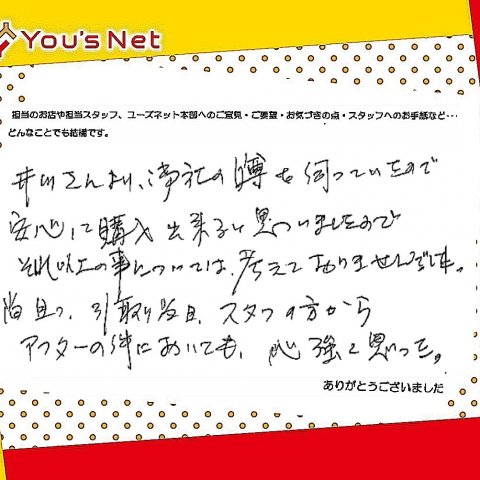 You's Net
担当のお店や担当スタッフ、ユーズネット本部へのご意見・ご要望・お気づきの点・スタッフへのお手紙など…
どんなことでも結構です。
井川さんより、浄社の噂を伺っていたので
安心して購入出来ると思っていましたので
それ以上の事については、考えておりませんでした。
当日の、引取り当日、スタッフの方から
アフターの件においても、心強く思った。
ありがとうございました